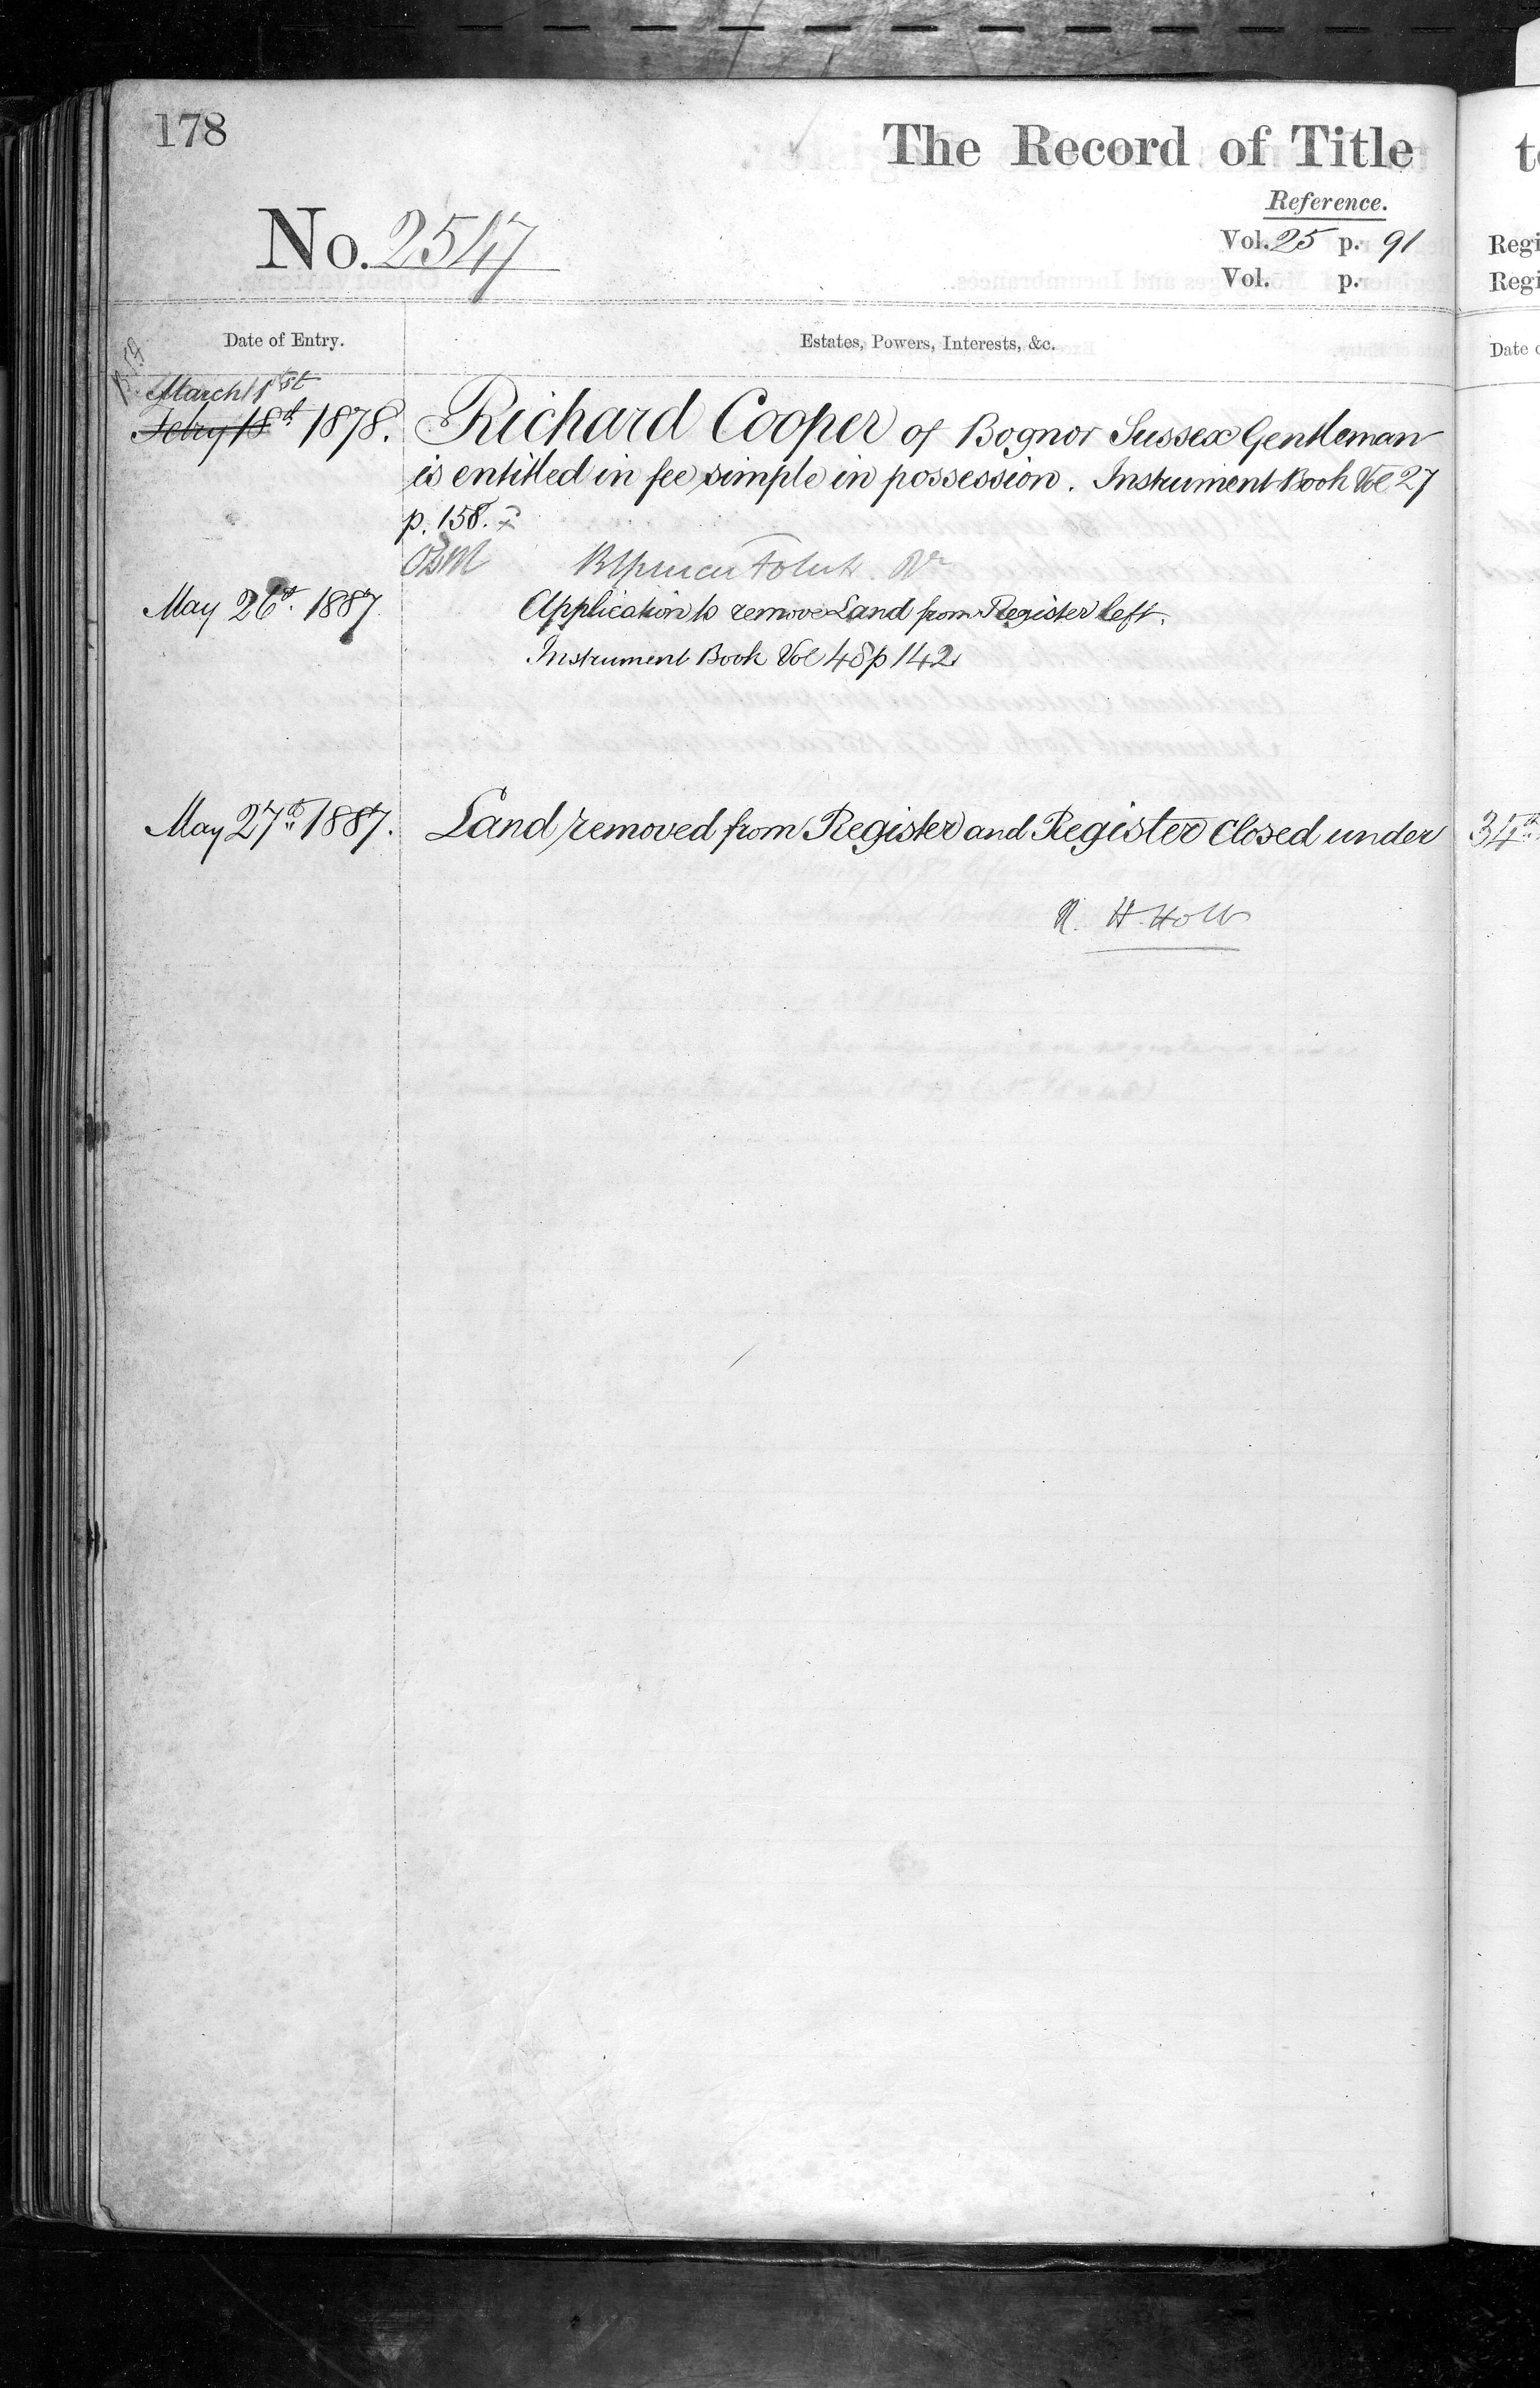 178
The Record of Title
Reference.
No. 2547
Vol. 25 p. 91
Vol. p.
Date of Entry.
Estates, Powers, Interests, &c.
March 1st
Febry 18th 1878.
Richard Cooper of Bognor Sussex Gentleman
is entitled in fee simple in possession. Instrument Book Vol 27
p. 158.
May 26th 1887
Application to remove Land from Register left.
Instrument Book Vol 48 p 142
May 27th 1887.
Land removed from Register and Register closed under
R. H. Holt
Regi
Regi
Date
34th